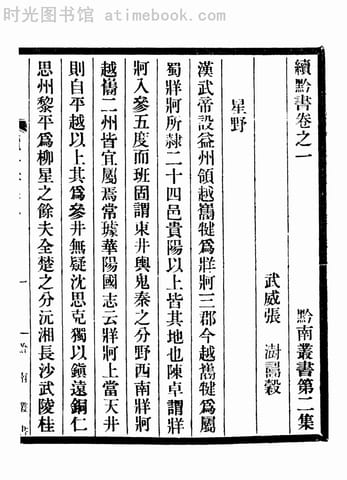 时光图书馆 - atimebook.com
續黔書卷之一 黔南叢書第二集
武威張 澍
星野
漢武帝設益州領越嶲犍爲牂牁三郡今越嶲犍爲屬
蜀牂牁所隸二十四邑貴陽以上皆其地也陳卓謂牂
牁入參五度而班固謂東井輿鬼秦之分野西南牂牁
越嶲二州皆宜屬焉常璩華陽國志云牂牁上當天井
則自平越以上其爲參井無疑沈思克獨以鎭遠銅仁
思州黎平爲柳星之餘夫全楚之分沅湘長沙武陵桂
一